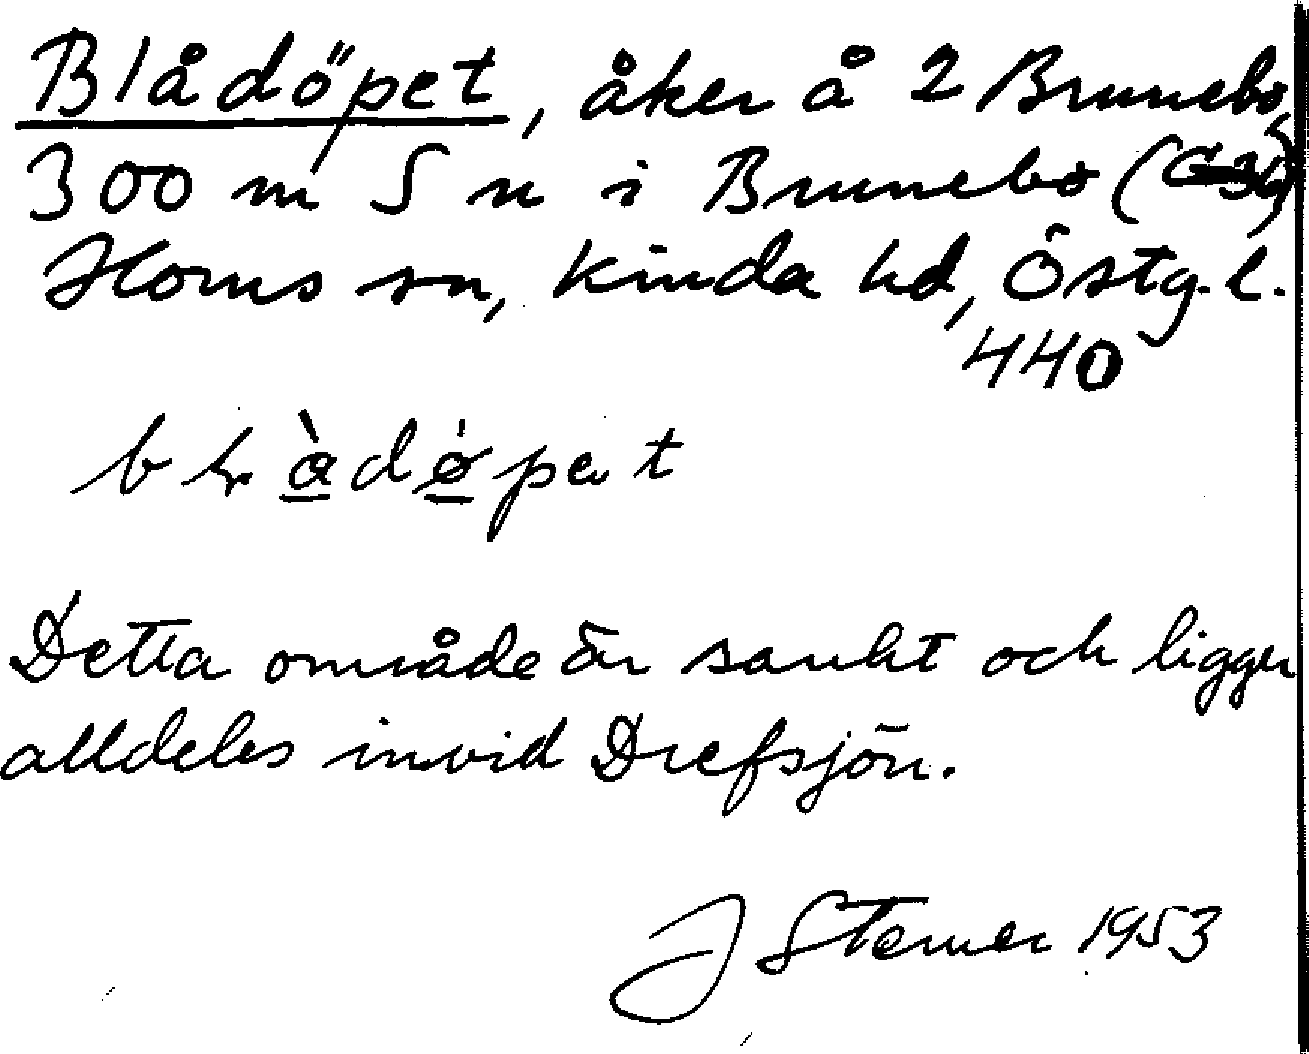 Blådöpet, åker å 2 Brunebo,
300 m S n i Brunebo (
Horns sn, Kinda hd, Östg. l.
440
Detta område är sankt och ligger
alldeles invid Drefsjön.
J Sterner 1953